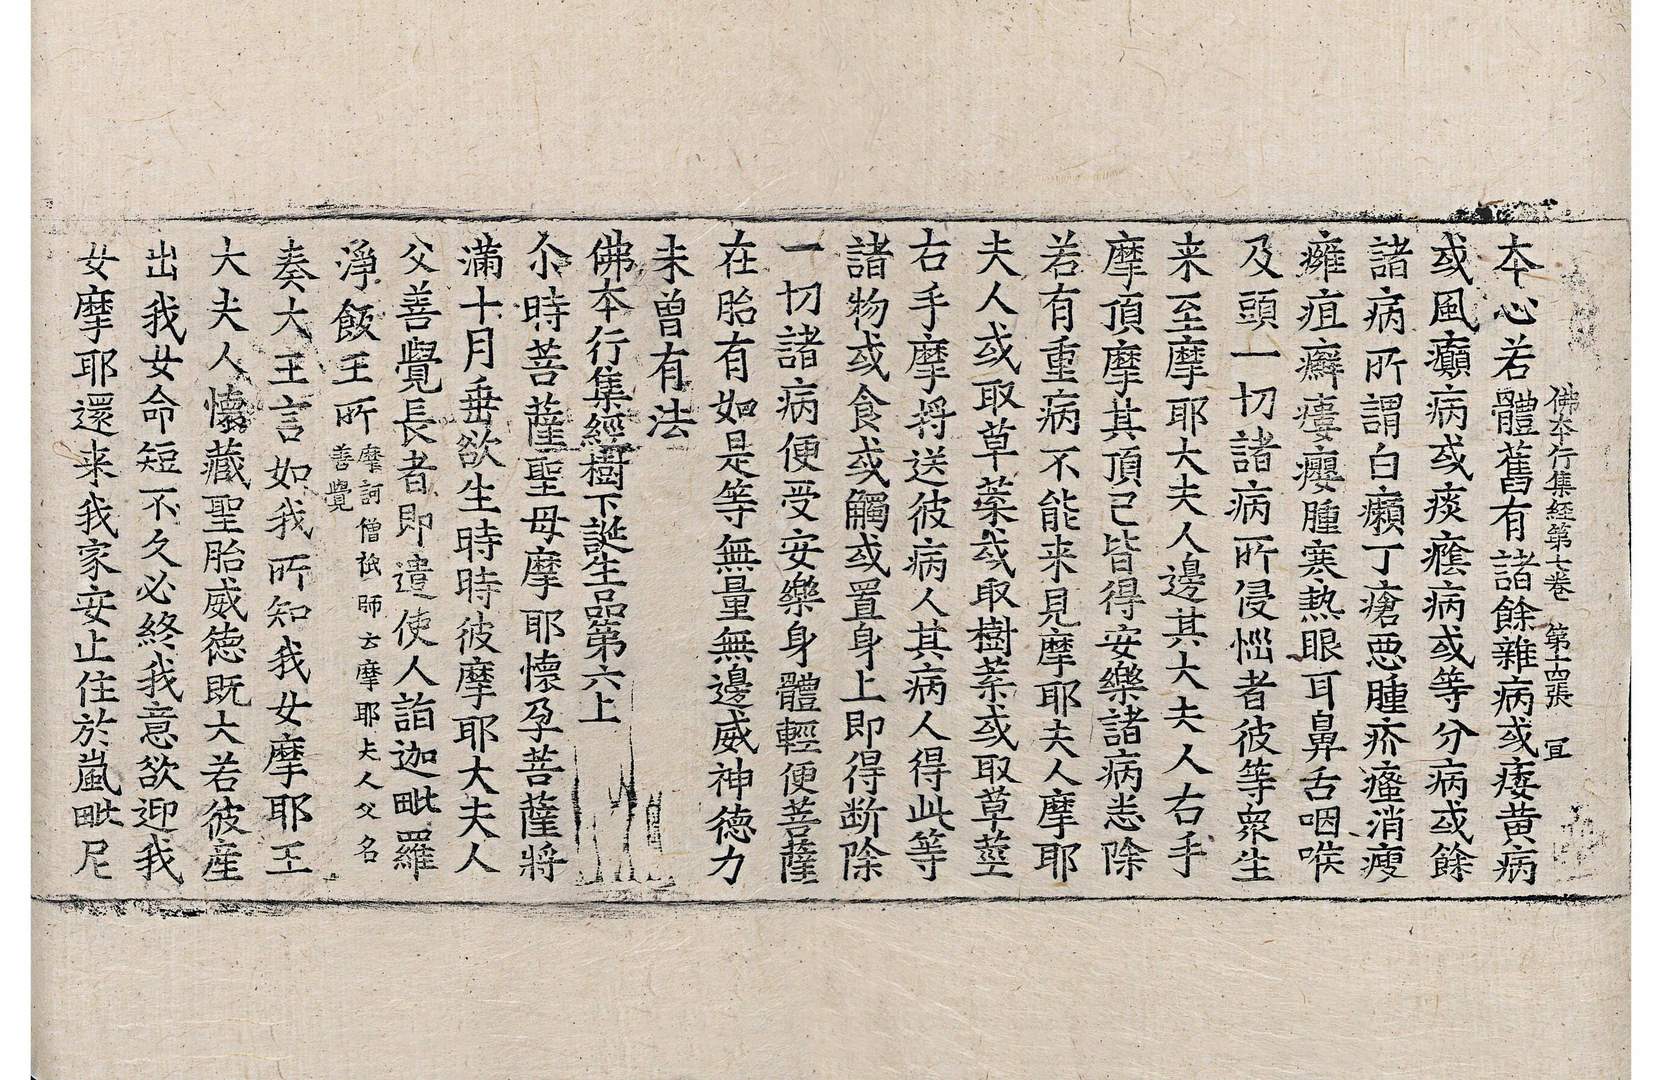 佛本行集經第七卷 第十四張 冝
本心若體舊有諸餘雜病或痿黄病
或風癲病或痰癊病或等分病或餘
諸病所謂白癩丁瘡惡腫疥瘙消瘦
癰疽癬瘻癭腫寒熱眼耳鼻舌咽喉
及頭一切諸病所侵惱者彼等衆生
来至摩耶大夫人邊其大夫人右手
摩頂摩其頂已皆得安樂諸病悉除
若有重病不能来見摩耶夫人摩耶
夫人或取草藥或取樹葉或取草莖
右手摩捋送彼病人其病人得此等
諸物或食或觸或置身上即得断除
一切諸病便受安樂身體輕便菩薩
在胎有如是等無量無邊威神德力
未曽有法
佛本行集經樹下誕生品第六上
尒時菩薩聖母摩耶懷孕菩薩將
滿十月垂欲生時時彼摩耶大夫人
父善覺長者即遣使人詣迦毗羅
淨飯王所摩訶僧祇師云摩耶夫人父名善覺
奏大王言如我所知我女摩耶王
大夫人懷藏聖胎威德既大若彼産
出我女命短不久必終我意欲迎我
女摩耶還来我家安止住於嵐毗尼